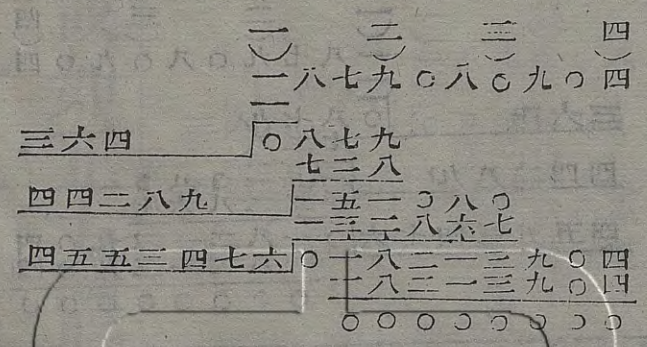 一 二 三 四
一八七九〇八〇九〇四
一
三六四 〇八七九
七二八
四四二八九 一五一〇八〇
一三二八六七
四五五三四七六 〇一八二一三九〇四
一八二一三九〇四
〇〇〇〇〇〇〇〇